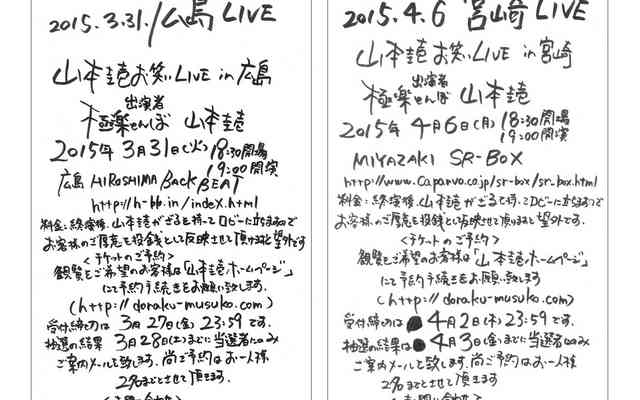 2015.3.31./広島 LIVE
山本圭お笑いLIVE in 広島
出演者
極楽せんぼ 山本圭
2015年 3月31日(火) 18:30開場
19:00開演
広島 HIROSHIMA BACK BEAT
http://h-bb.in/index.html
料金:終演後、山本圭がざるを持ってロビーに立ちますので
お客様のご厚意を投銭として反映させて頂けますと望外です
<チケットのご予約>
観覧をご希望のお客様は「山本圭ホームページ」
にて予約手続きをお願い致します
(http://doraku-musuko.com)
受付締切は 3月27日(金) 23:59です。
抽選の結果 3月28日(土)までに当選者にのみ
ご案内メールを致します。尚ご予約はお一人様
2名までとさせて頂きます。
2015.4.6 宮崎 LIVE
山本圭お笑いLIVE in 宮崎
出演者
極楽せんぼ 山本圭
2015年 4月6日(月) 18:30開場
19:00開演
MIYAZAKI SR-BOX
http://www.caparvo.co.jp/sr-box/sr-box.html
料金:終演後、山本圭がざるを持ってロビーに立ちますので
お客様のご厚意を投銭として反映させて頂けますと望外です.
<チケットのご予約>
観覧をご希望のお客様は「山本圭ホームページ」
にて予約手続きをお願い致します
(http://doraku-musuko.com)
受付締切は 4月2日(木) 23:59です.
抽選の結果は 4月3日(金)までに当選者にのみ
ご案内メールを致します。尚ご予約はお一人様
2名までとさせて頂きます.